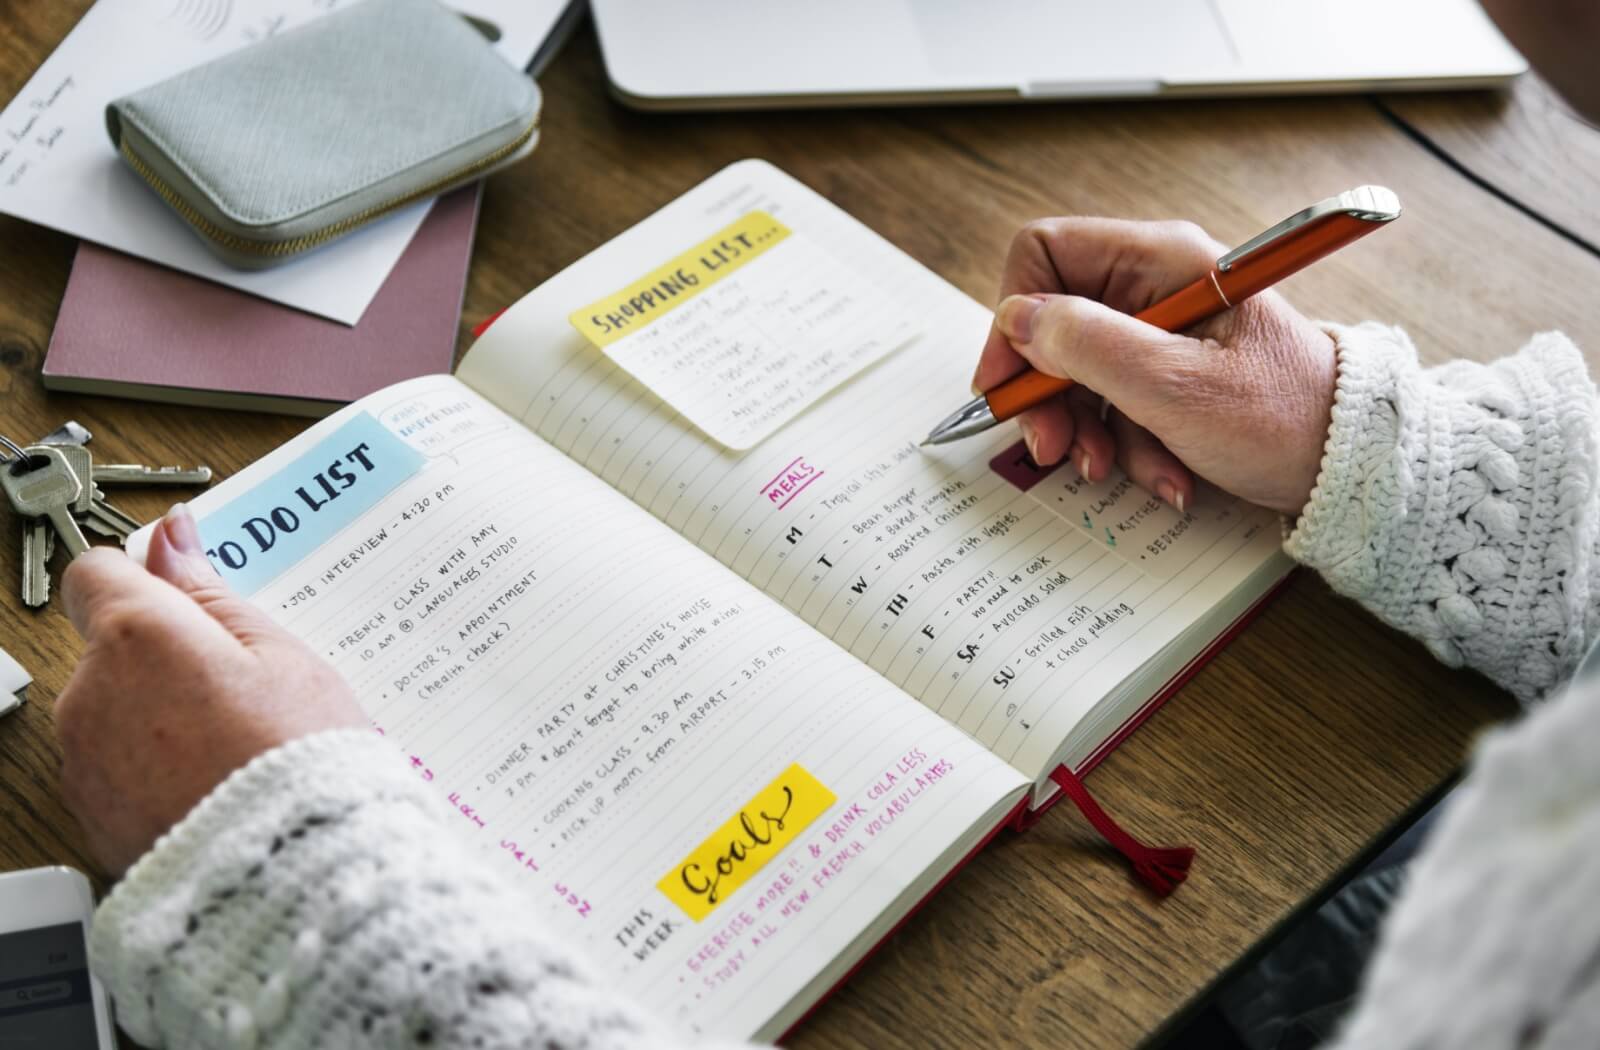 TO DO LIST
WHAT'S
IMPORTANT
THIS WEEK
• JOB INTERVIEW – 4:30 PM
• FRENCH CLASS WITH AMY
10 AM @ LANGUAGES STUDIO
• DOCTOR'S APPOINTMENT
(health check)
FRI
• DINNER PARTY at CHRISTINE'S HOUSE
7 PM * don't forget to bring white wine!
SAT
• COOKING CLASS – 9.30 AM
• PICK UP mom from AIRPORT – 3.15 PM
SUN
THIS
WEEK
Goals
• EXERCISE MORE!! & DRINK COLA LESS
• STUDY ALL NEW FRENCH VOCABULARIES
SHOPPING LIST...
MEALS
M - Tropical style salad
T - Bean Burger
+ Baked pumpkin
W - Roasted chicken
TH - Pasta with Veggies
F - PARTY!!
no need to cook
SA - Avocado salad
SU - Grilled Fish
+ choco pudding
T
✓ LAUNDRY
✓ KITCHEN
• BEDROOM
Search